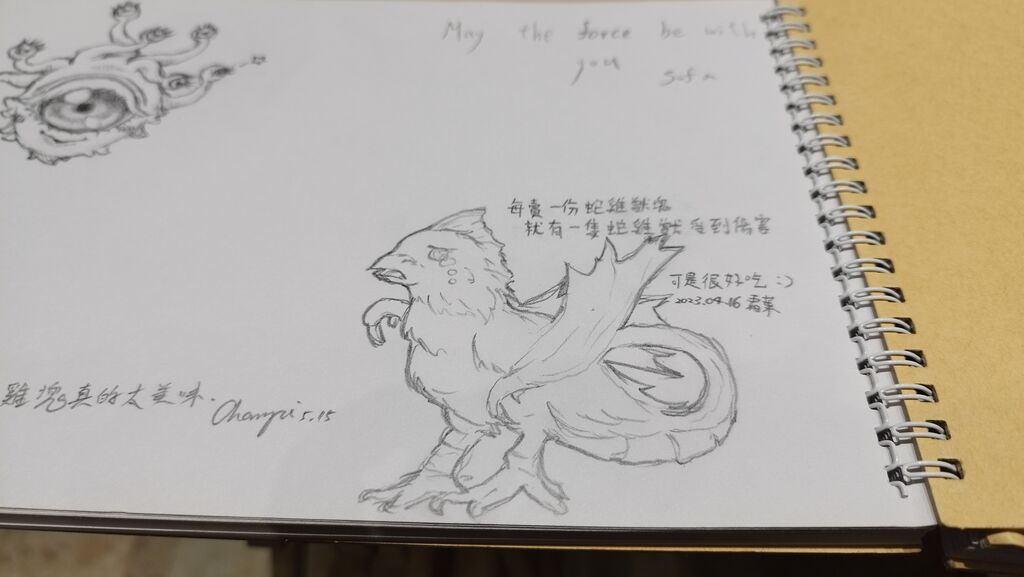 May the force be with
you Sofa
每賣一份蛇雞獸塊
就有一隻蛇雞獸受到傷害
可是很好吃 :)
2023.04.16 霜葉
雞塊真的太美味.
5.15